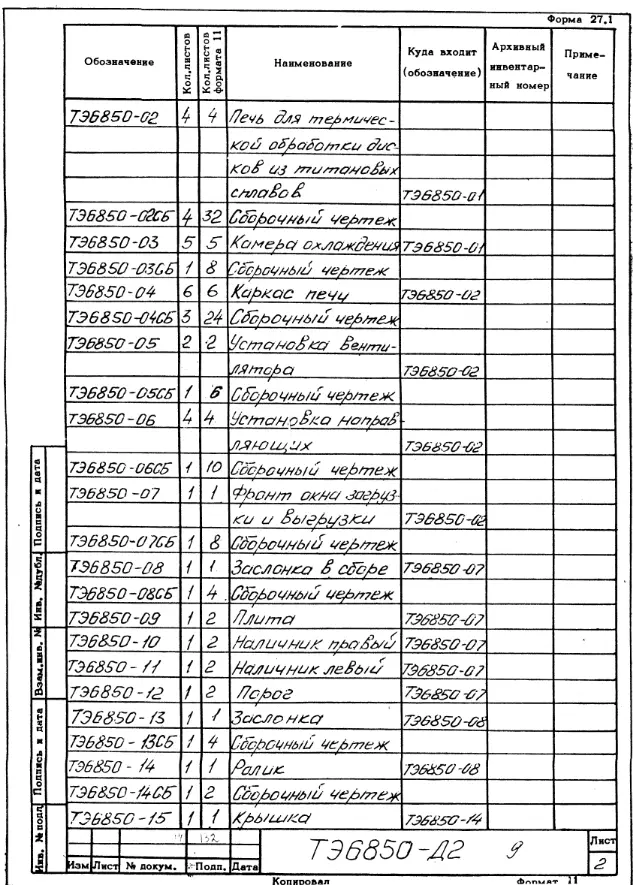 Форма 27.1
Обозначение Кол.листов Кол.листов формата 11 Наименование Куда входит (обозначение) Архивный инвентар-ный номер Приме-чание
ТЭ6850-02 4 4 Печь для термичес-
кой обработки дис-
ков из титановых
сплавов ТЭ6850-01
ТЭ6850-02СБ 4 32 Сборочный чертеж
ТЭ6850-03 5 5 Камера охлаждения ТЭ6850-01
ТЭ6850-03СБ 1 8 Сборочный чертеж
ТЭ6850-04 6 6 Каркас печи ТЭ6850-02
ТЭ6850-04СБ 3 24 Сборочный чертеж
ТЭ6850-05 2 2 Установка венти-
лятора ТЭ6850-02
ТЭ6850-05СБ 1 6 Сборочный чертеж
ТЭ6850-06 4 4 Установка направ-
ляющих ТЭ6850-02
ТЭ6850-06СБ 1 10 Сборочный чертеж
ТЭ6850-07 1 1 Фронт окна загруз-
ки и выгрузки ТЭ6850-02
ТЭ6850-07СБ 1 8 Сборочный чертеж
ТЭ6850-08 1 1 Заслонка в сборе ТЭ6850-07
ТЭ6850-08СБ 1 4 Сборочный чертеж
ТЭ6850-09 1 2 Плита ТЭ6850-07
ТЭ6850-10 1 2 Наличник правый ТЭ6850-07
ТЭ6850-11 1 2 Наличник левый ТЭ6850-07
ТЭ6850-12 1 2 Порог ТЭ6850-07
ТЭ6850-13 1 1 Заслонка ТЭ6850-08
ТЭ6850-13СБ 1 4 Сборочный чертеж
ТЭ6850-14 1 1 Ролик ТЭ6850-08
ТЭ6850-14СБ 1 2 Сборочный чертеж
ТЭ6850-15 1 1 Крышка ТЭ6850-14
Подпись и дата
Инв. №дубл.
Взам.инв. №
Подпись и дата
Инв. № подл.
Изм Лист № докум. Подп. Дата
ТЭ6850-Д2 9
Лист
2
Копировал Формат 11